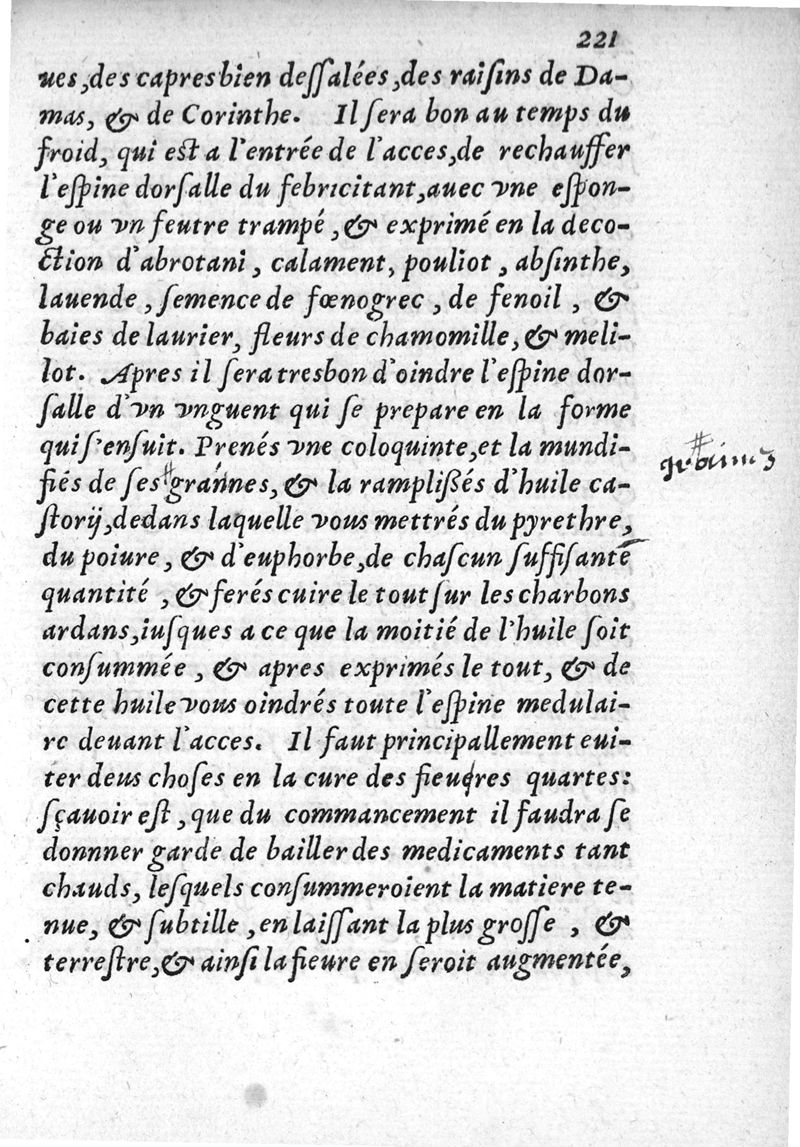 221
ues,des capres bien deſſalées,des raiſins de Da-
mas, & de Corinthe. Il ſera bon au temps du
froid, qui eſt a l'entrée de l'acces,de rechauffer
l'eſpine dorſalle du febricitant,auec vne eſpon-
ge ou vn feutre trampé ,& exprimé en la deco-
ction d'abrotani , calament, pouliot , abſinthe,
lauende , ſemence de fœnogrec , de fenoil , &
baies de laurier, fleurs de chamomille, & meli-
lot. Apres il ſera tresbon d'oindre l'eſpine dor-
ſalle d'vn vnguent qui ſe prepare en la forme
qui ſ'enſuit. Prenés vne coloquinte,et la mundi-
fiés de ſes # grannes, & la rampliſsés d'huile ca-
ſtorij,dedans laquelle vous mettrés du pyrethre,
du poiure, & d'euphorbe,de chaſcun ſuffiſante
quantité , & ferés cuire le tout ſur les charbons
ardans,iuſques a ce que la moitié de l'huile ſoit
conſummée , & apres exprimés le tout, & de
cette huile vous oindrés toute l'eſpine medulai-
re deuant l'acces. Il faut principallement eui-
ter deus choſes en la cure des fieures quartes:
ſçauoir eſt ,que du commancement il faudra ſe
donnner garde de bailler des medicaments tant
chauds, leſquels conſummeroient la matiere te-
nue, & ſubtille ,en laiſſant la plus groſſe , &
terreſtre,& ainſi la fieure en ſeroit augmentée,
#